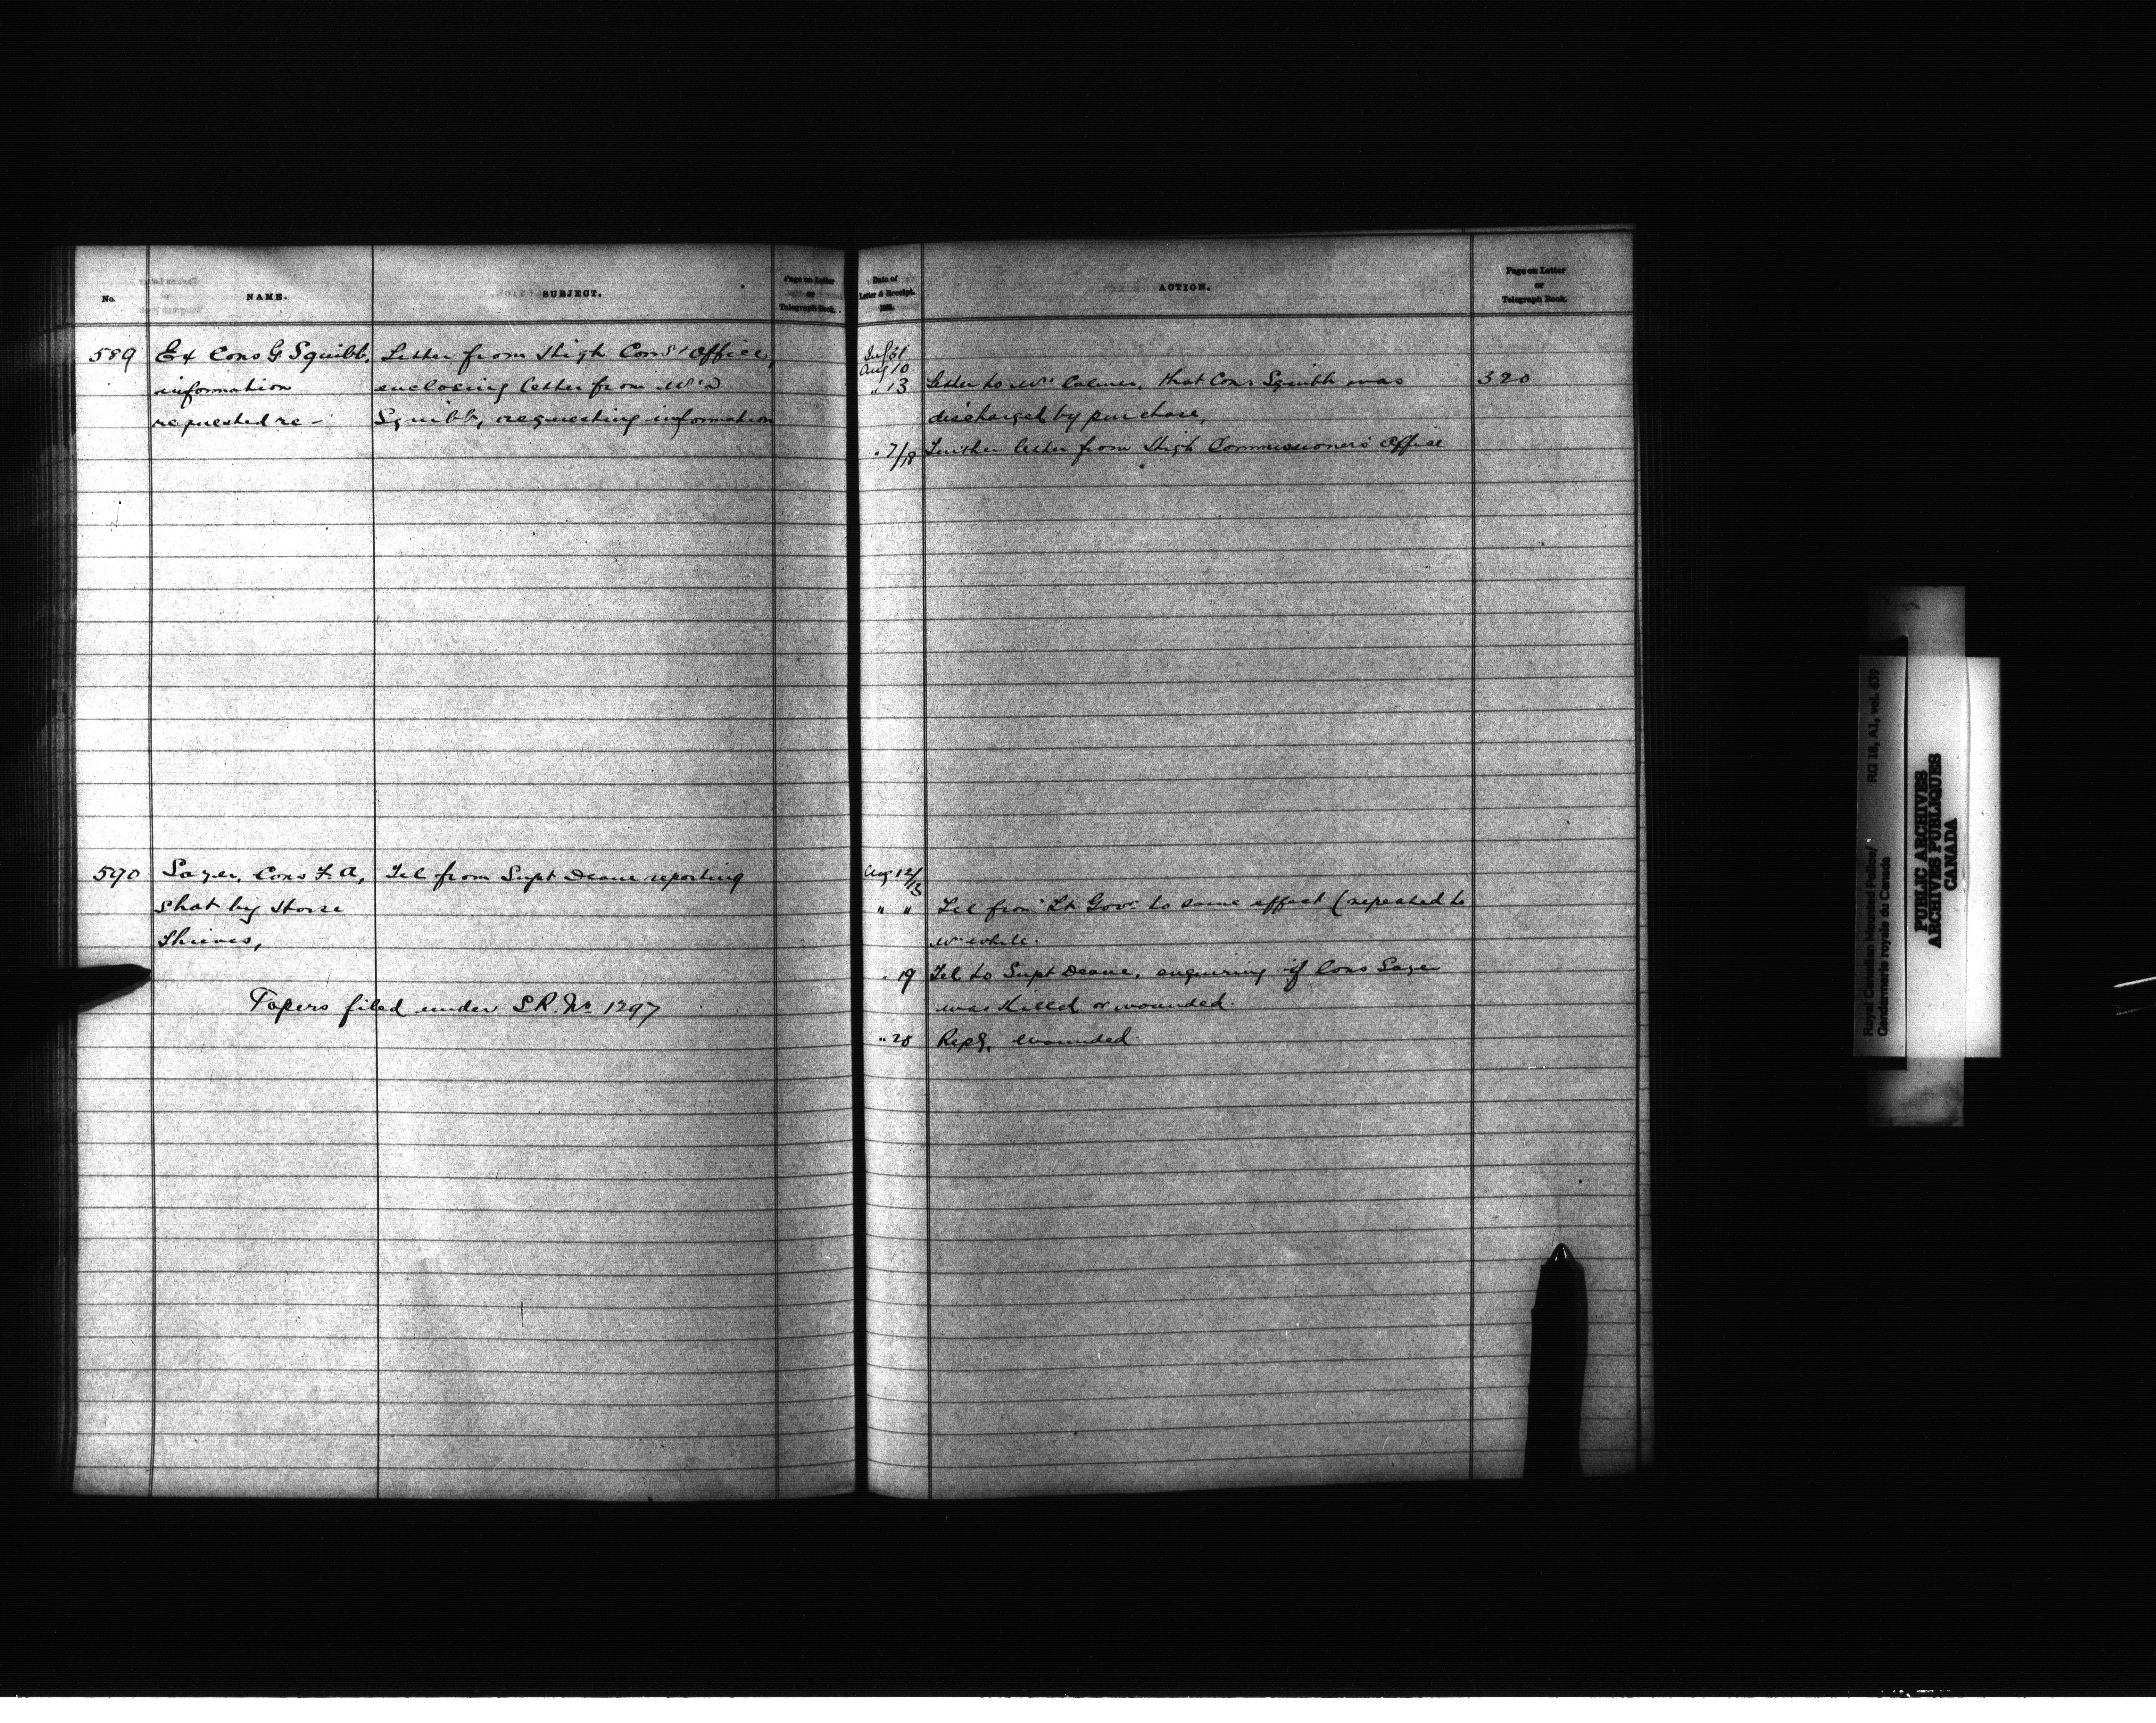 No.
NAME.
SUBJECT.
Page on Letter
or
Telegraph Book.
589
Ex Cons G Squibb,
information
requested re -
Letter from High Coms' Office,
enclosing letter from Mrs
Squibb, requesting information
590
Sayer, Cons F. A,
shot by Horse
Thieves,
Tel from Supt Deane reporting
Papers filed under S.R. No 1297
Date of
Letter & Receipt.
188
ACTION.
Page on Letter
or
Telegraph Book.
Jul 31
Aug 10
" 13 Letter to Mr Colmer, that Cons Squibb was 320
discharged by purchase,
" 7/18 Further letter from High Commissioners Office
Aug 12/13
" " Tel from Lt Govr to same effect (repeated to
Mr White.
" 19 Tel to Supt Deane, enquiring if Cons Sayer
was Killed or wounded.
" 20 Reply, wounded.
Royal Canadian Mounted Police/ RG 18, A1, vol. 639
Gendarmerie royale du Canada
PUBLIC ARCHIVES
ARCHIVES PUBLIQUES
CANADA